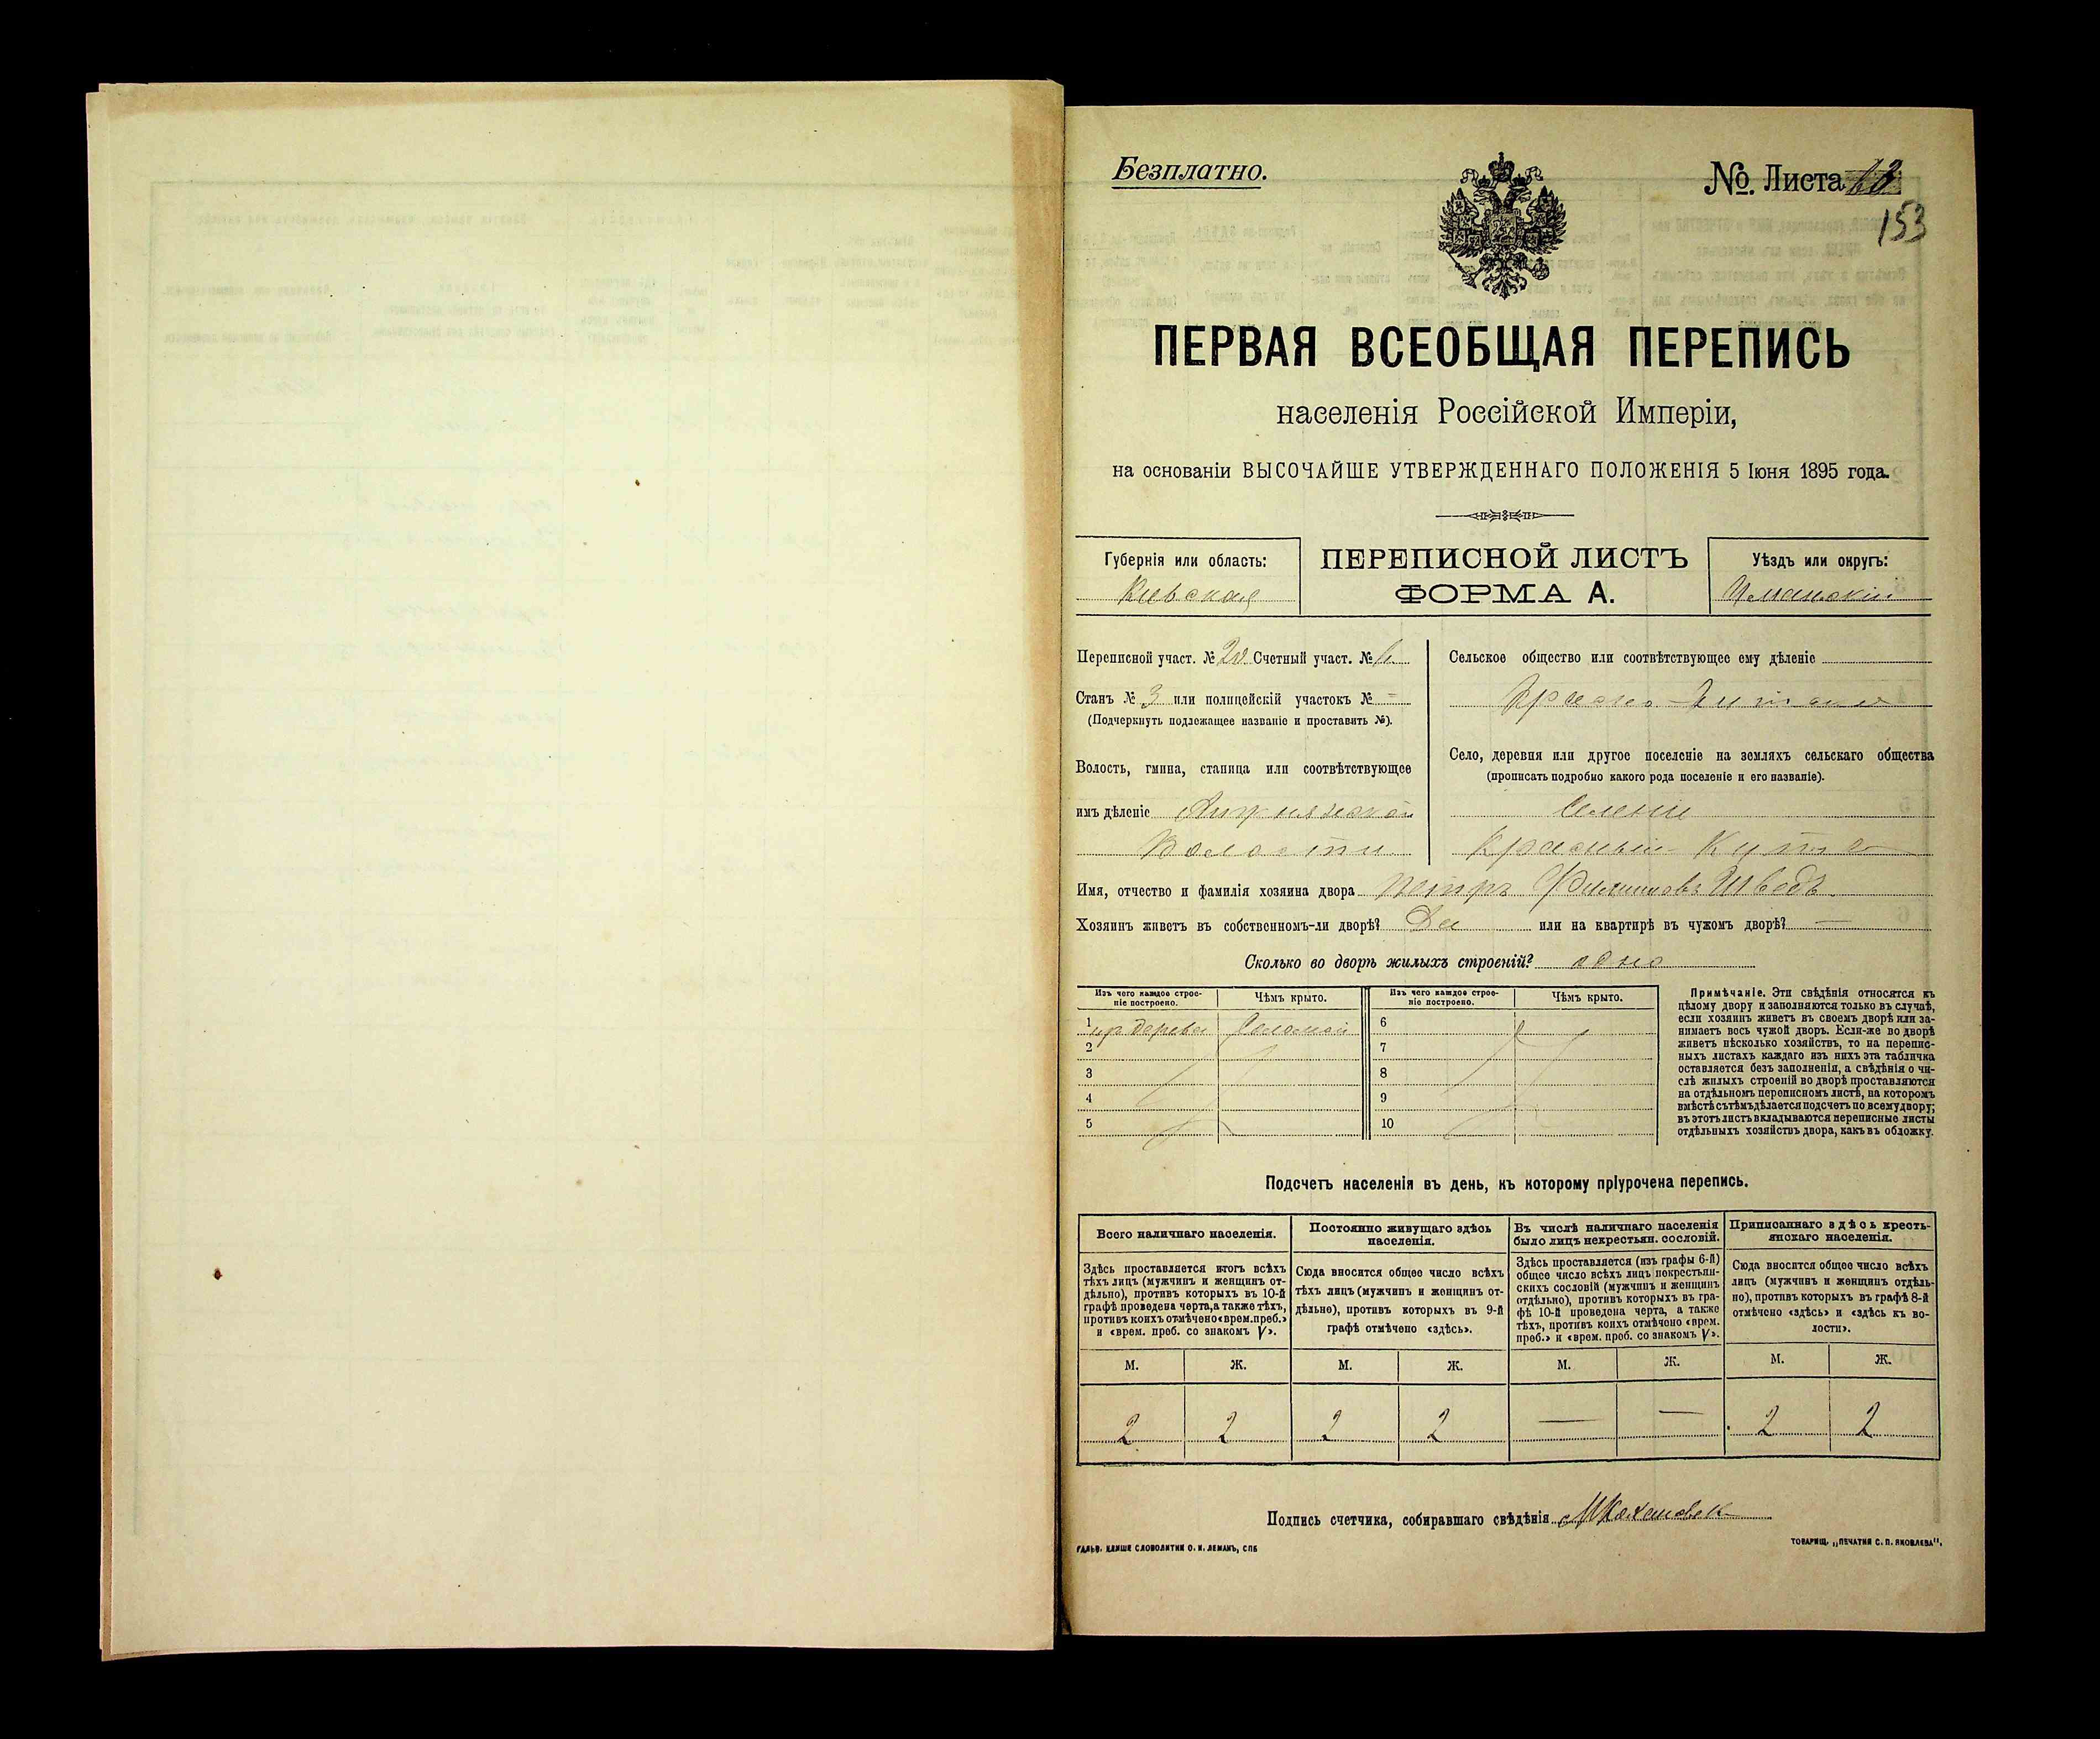 Безплатно.
№. Листа
153
ПЕРВАЯ ВСЕОБЩАЯ ПЕРЕПИСЬ
населенія Россійской Имперіи,
на основаніи ВЫСОЧАЙШЕ УТВЕРЖДЕННАГО ПОЛОЖЕНІЯ 5 Іюня 1895 года.
Губернія или область:
Кіевская
ПЕРЕПИСНОЙ ЛИСТЪ
ФОРМА А.
Уѣздъ или округъ:
Уманскій
Переписной участ. № 20 Счетный участ. № 6
Станъ № 3 или полицейскій участокъ № –
(Подчеркнуть подлежащее названіе и проставить №).
Волость, гмина, станица или соотвѣтствующее
имъ дѣленіе
Волости
Сельское общество или соотвѣтствующее ему дѣленіе
Село, деревня или другое поселеніе на земляхъ сельскаго общества
(прописать подробно какого рода поселеніе и его названіе).
Селеніе
Красный Кутъ
Имя, отчество и фамилія хозяина двора Петръ Филиповъ Шведъ
Хозяинъ живетъ въ собственномъ-ли дворѣ? Да или на квартирѣ въ чужомъ дворѣ? —
Сколько во дворѣ жилыхъ строеній? одно
Изъ чего каждое строе-
ніе построено.
Чѣмъ крыто.
Изъ чего каждое строе-
ніе построено.
Чѣмъ крыто.
1 изъ дерева Соломой 6
2 7
3 8
4 9
5 10
Примѣчаніе. Эти свѣдѣнія относятся къ
цѣлому двору и заполняются только въ случаѣ,
если хозяинъ живетъ въ своемъ дворѣ или за-
нимаетъ весь чужой дворъ. Если-же во дворѣ
живетъ нѣсколько хозяйствъ, то на перепис-
ныхъ листахъ каждаго изъ нихъ эта табличка
оставляется безъ заполненія, а свѣдѣнія о чи-
слѣ жилыхъ строеній во дворѣ проставляются
на отдѣльномъ переписномъ листѣ, на которомъ
вмѣстѣ съ тѣмъ дѣлается подсчетъ по всему двору;
въ этотъ листъ вкладываются переписные листы
отдѣльныхъ хозяйствъ двора, какъ въ обложку.
Подсчетъ населенія въ день, къ которому пріурочена перепись.
Всего наличнаго населенія.
Здѣсь проставляется итогъ всѣхъ
тѣхъ лицъ (мужчинъ и женщинъ от-
дѣльно), противъ которыхъ въ 10-й
графѣ проведена черта, а также тѣхъ,
противъ коихъ отмѣчено «врем. преб.»
и «врем. преб. со знакомъ V».
Постоянно живущаго здѣсь
населенія.
Сюда вносится общее число всѣхъ
тѣхъ лицъ (мужчинъ и женщинъ от-
дѣльно), противъ которыхъ въ 9-й
графѣ отмѣчено «здѣсь».
Въ числѣ наличнаго населенія
было лицъ некрестьян. сословій.
Здѣсь проставляется (изъ графы 6-й)
общее число всѣхъ лицъ некрестьян-
скихъ сословій (мужчинъ и женщинъ
отдѣльно), противъ которыхъ въ гра-
фѣ 10-й проведена черта, а также
тѣхъ, противъ коихъ отмѣчено «врем.
преб.» и «врем. преб. со знакомъ V».
Приписаннаго здѣсь кресть-
янскаго населенія.
Сюда вносится общее число всѣхъ
лицъ (мужчинъ и женщинъ отдѣль-
но), противъ которыхъ въ графѣ 8-й
отмѣчено «здѣсь» и «здѣсь къ во-
лости».
М. Ж. М. Ж. М. Ж. М. Ж.
2 2 2 2 — — 2 2
Подпись счетчика, собиравшаго свѣдѣнія
ГАЛЬВ. КЛИШЕ СЛОВОЛИТНИ О. И. ЛЕМАНЪ, СПБ
ТОВАРИЩ. „ПЕЧАТНЯ С. П. ЯКОВЛЕВА".